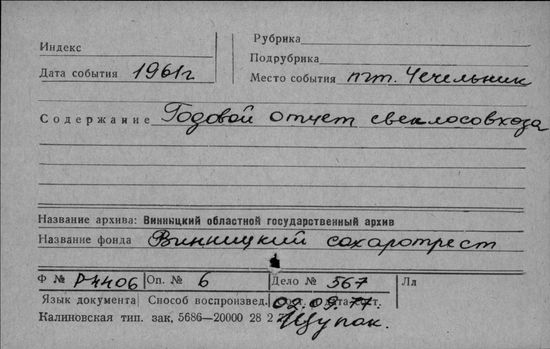 Индекс
Рубрика
Подрубрика
Дата события 1961г
Место события пгт. Чечельник
Содержание Годовой отчет свеклосовхоза
Название архива: Винницкий областной государственный архив
Название фонда Винницкий сахаротрест
Ф № Р-4406 Оп. № 6 Дело № 567 Лл
Язык документа Способ воспроизвед.
02.09.77.
Калиновская тип. зак, 5686—20000 28 2
Щупак.